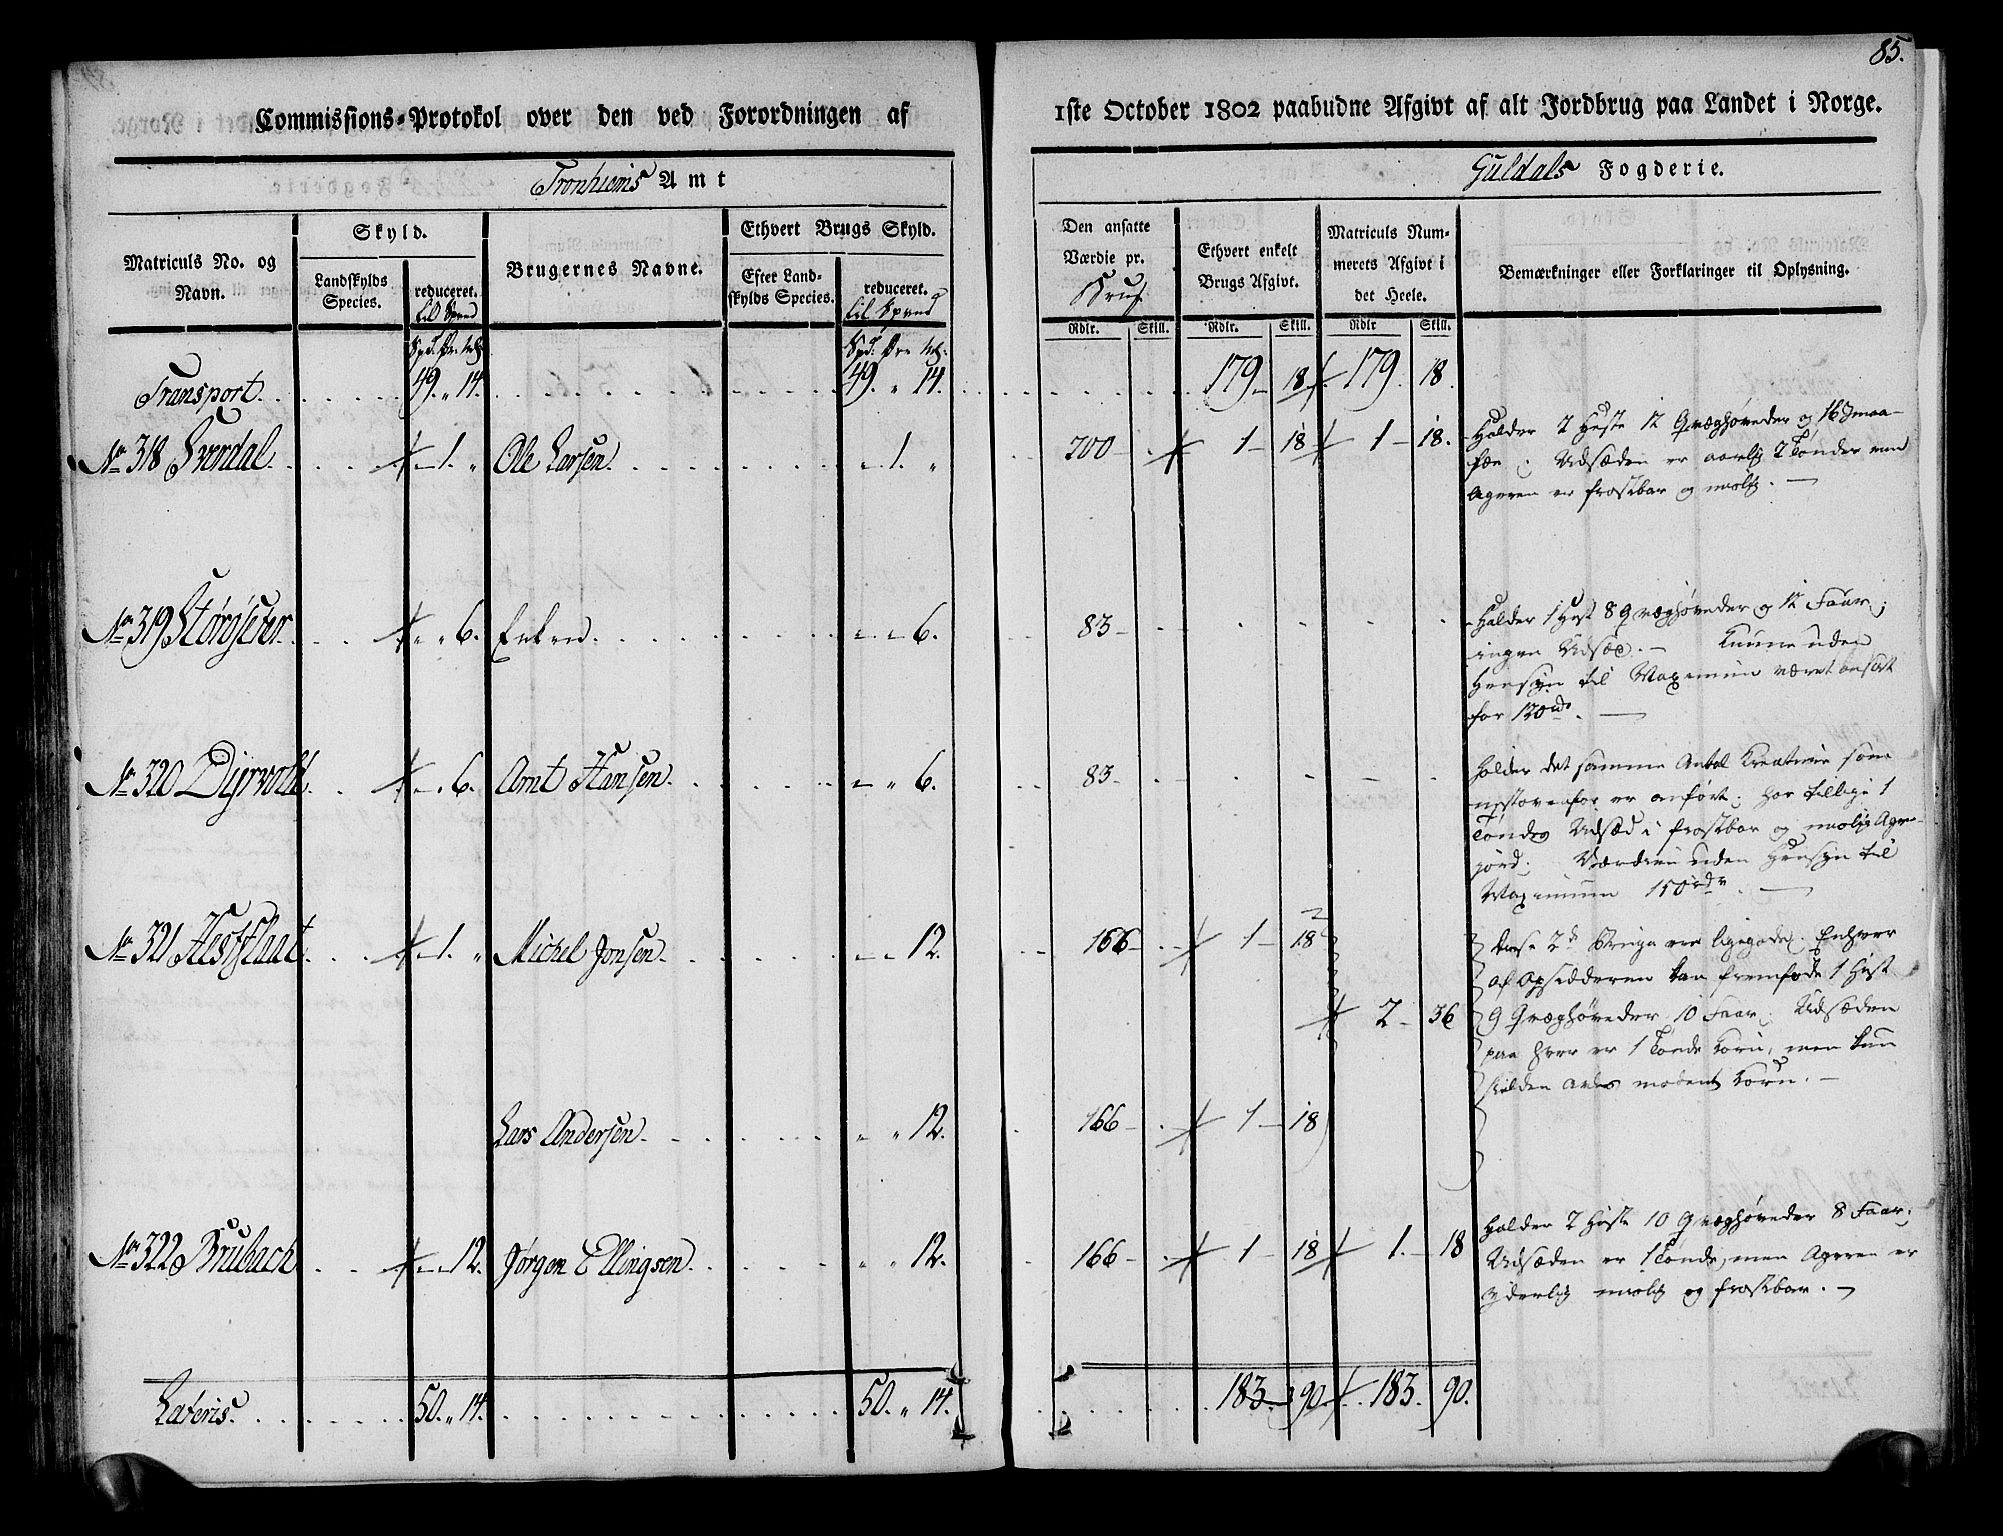 85.
Commissions-Protokol over den ved Forordningen af
1ste October 1802 paabudne Afgivt af alt Jordbrug paa Landet i Norge.
Tronhiems Amt
Guldals Fogderie.
Matriculs No. og Navn.
Skyld.
Landskylds Species.
reduceret.
til Spand
Brugernes Navne.
Ethvert Brugs Skyld.
Efter Landskylds Species.
reduceret.
til Spand
Den ansatte Værdie pr.
Ethvert enkelt Brugs Afgivt.
Matriculs Nummerets Afgivt i det Heele.
Bemærkninger eller Forklaringer til Oplysning.
Rdlr. Skill. Rdlr. Skill. Rdlr Skill.
Transport. 49. " 14. 49. " 14. 179 18 179. 18.
No 318 Sverdal. 1. " Ole Larsen. 1. " 200 1 18 1 18.
Holder 2 Heste 12 Qvæghøveder og 16 Smaa-
fæ; Udsæden er aarlig 2 Tønder men
Ageren er frostbar og uvolig.
No 319 Størgsæter. " 6. Enken. 6. 83
Holder 1 Hest 8 Qvæghøveder og 12 Faar;
ingen Udsæd. Kunne uden
Hensyn til Maximum været ansat
for 120 rd.
No 320 Dyrvold. " 6. Arnt Hansen. " 6. 83
holder det samme Antal Kreature som
næstovenfor er anført; har tillige 1
Tønde Udsæd i frostbar og uvolig Ager-
jord; Værdien uden Hensyn til
Maximum 150 rdr.
No 321 Hestflaat. 1. " Michel Jonsen. 12. 166 1 18
2 36
disse 2de Bruge ere ligegode. Enhver
af Opsidderne kan fremføde 1 Hest
9 Qvæghøveder 10 Faar; Udsæden
paa hver er 1 Tønde Korn, men kun
sielden avles modent Korn.
Lars Andersen. " 12. 166 1 18
No 322 Brubach. 12. Jørgen Ellingsen. " 12. 166 1 18 1. 18
Holder 2 Heste 10 Qvæghøveder 8 Faar;
Udsæden er 1 Tønde, men Ageren er
yderlig uvolig og frostbar.
Lateris. 50. " 14. 50. " 14. 183 90. 183. 90.